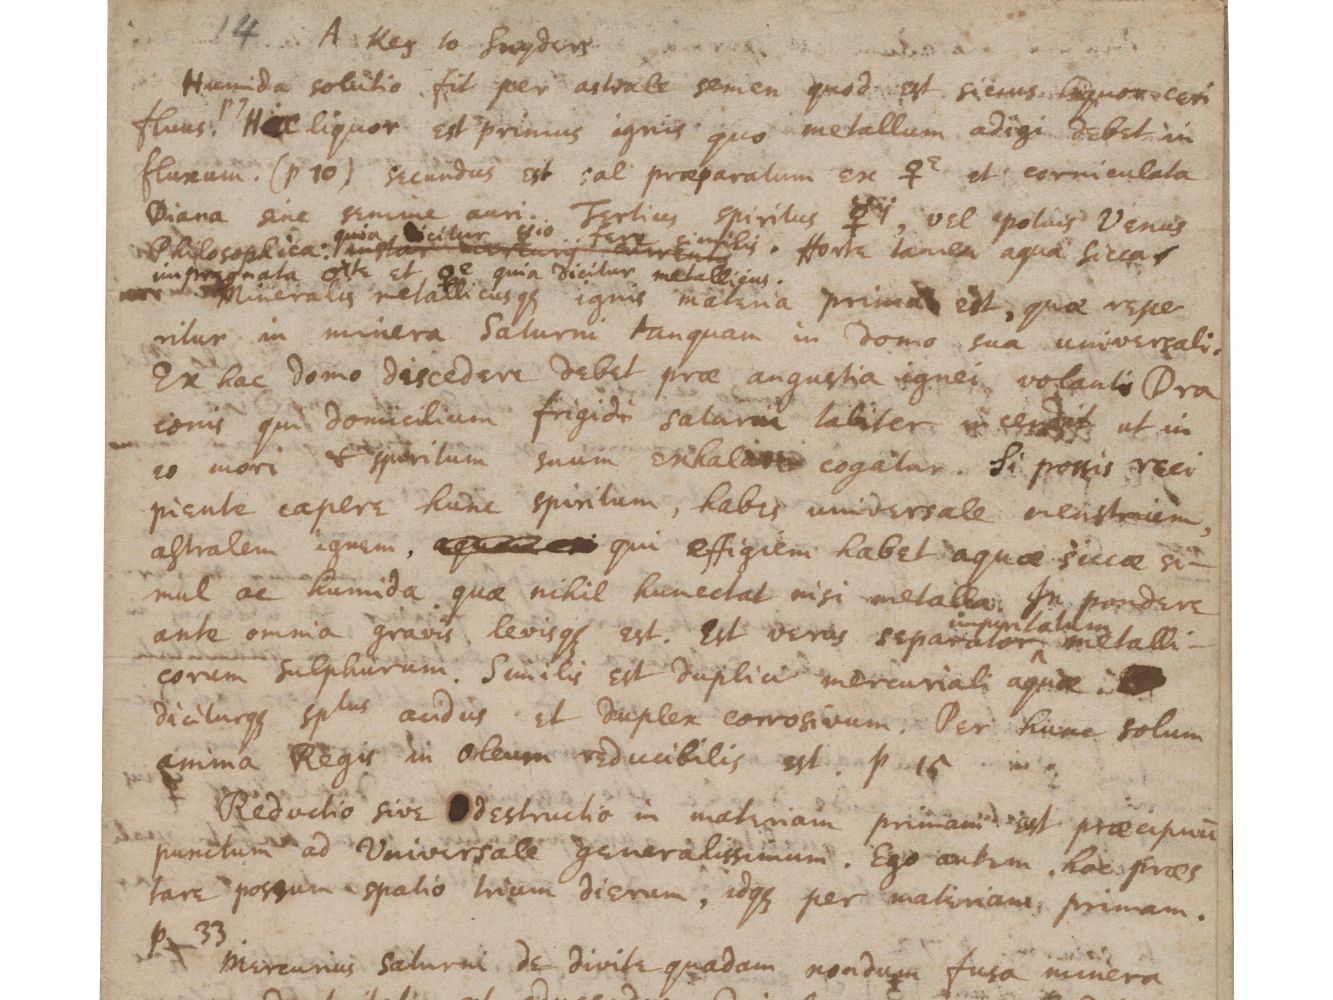 14 A Key to Snyders
Humida solutio fit per astrale semen quod est siccus liquor ceri
fluus. p 7 Hic liquor est primus ignis quo metallum adigi debet in
fluxum. (p 10) secundus est sal præparatum ex ♀e et corniculata
Diana sine semine auri. Tertius spiritus ☿ij, vel potius Venus
quia dicitur fere similis.
Philosophica: instar mercurij currentis Forte tamen aqua sicca
impregnata ♂te et ♀e quia dicitur metallicus.
Mineralis metallicusq ignis materia prima est, quæ repe
ritur in minera Saturni tanquam in domo sua universali.
Ex hac domo discedere debet præ angustia ignei volantis Dra
conis qui domicilium frigidi Saturni taliter incendit ut in
eo mori & spiritum suum exhalare cogatur. Si possis reci
piente capere hunc spiritum, habes universale menstruum,
astralem ignem, qui effigiem habet aquæ siccæ si-
mul ac humida quæ nihil humectat nisi metalla. In pondere
ante omnia gravis levisq est. Est verus separator
impuritatum
metalli-
corum sulphurum. Similis est duplici mercuriali aquæ.
diciturq sptus acidus et duplex corrosivum. Per hunc solum
anima Regis in oleum reducibilis est. p 15
Reductio sive destructio in materiam primam est præcipuū
punctum ad Universale generalissimum. Ego autem hoc præs
tare possum spatio trium dierum, idq per materiam primam.
p 33
Mercurius Saturni de divite quadam nondum fusa minera